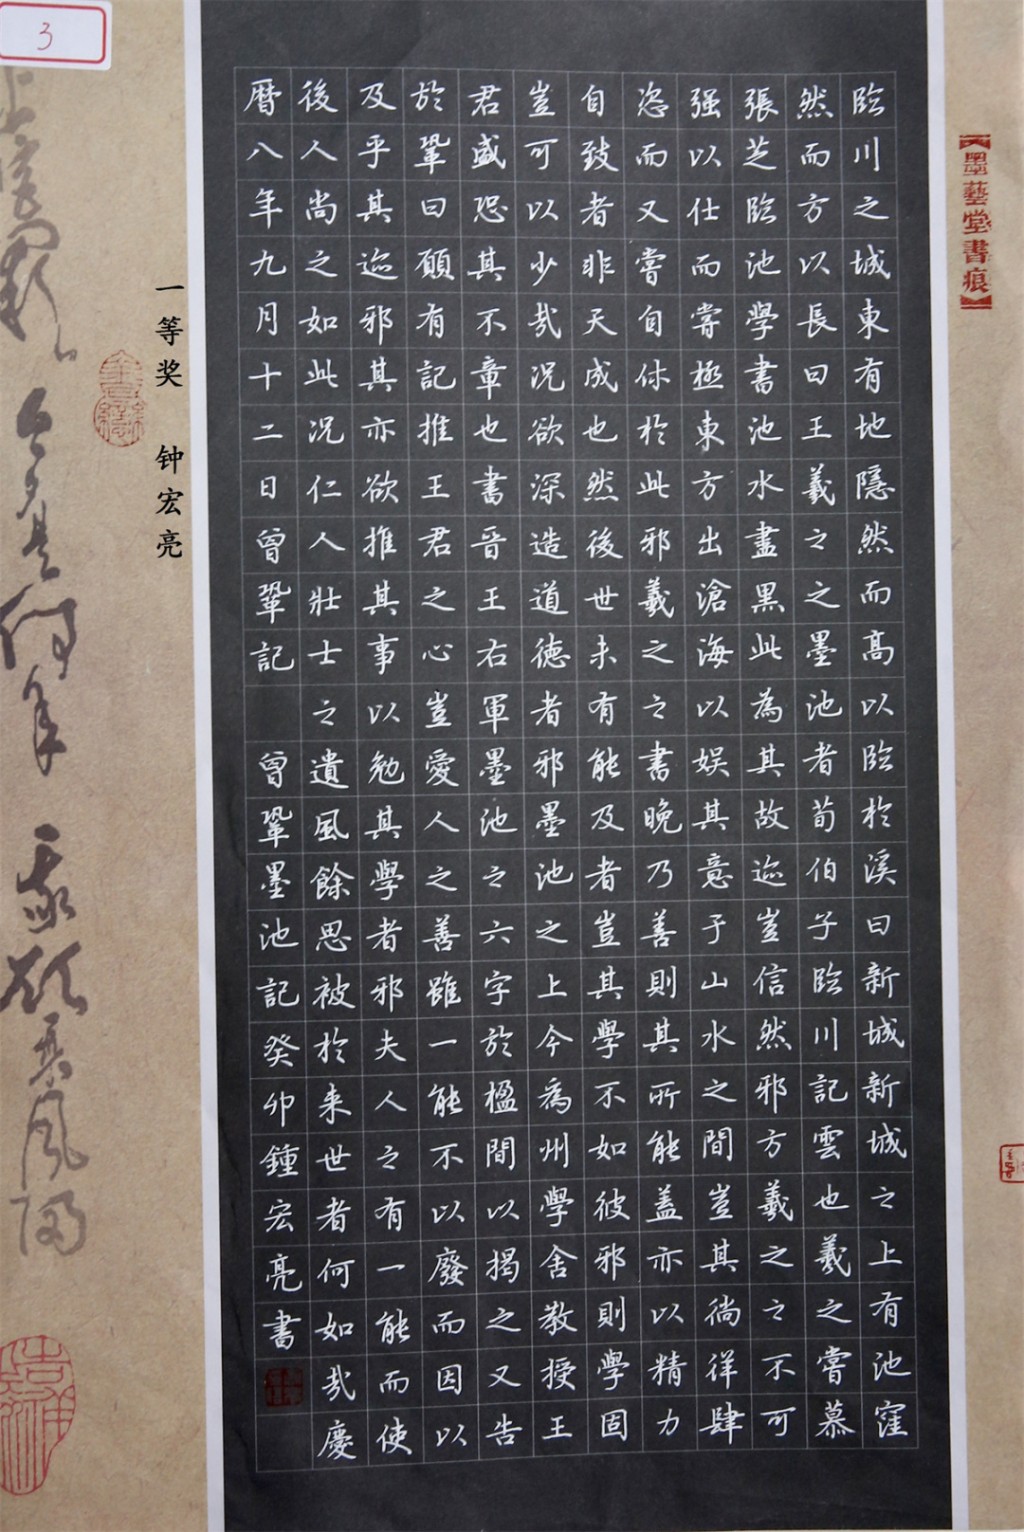 墨藝堂書痕
臨川之城東有地隱然而高以臨於溪曰新城新城之上有池窪
然而方以長曰王羲之之墨池者荀伯子臨川記雲也羲之嘗慕
張芝臨池學書池水盡黑此為其故迹豈信然邪方羲之之不可
强以仕而嘗極東方出滄海以娱其意于山水之間豈其徜徉肆
恣而又嘗自休於此邪羲之之書晚乃善則其所能蓋亦以精力
自致者非天成也然後世未有能及者豈其學不如彼邪則學固
豈可以少哉况欲深造道德者邪墨池之上今為州學舍教授王
君盛恐其不章也書晉王右軍墨池之六字於楹間以揭之又告
於鞏曰願有記推王君之心豈愛人之善雖一能不以廢而因以
及乎其迹邪其亦欲推其事以勉其學者邪夫人之有一能而使
後人尚之如此况仁人壯士之遺風餘思被於来世者何如哉慶
暦八年九月十二日曾鞏記 曾鞏墨池記癸卯鐘宏亮書
一等奖 钟宏亮
3